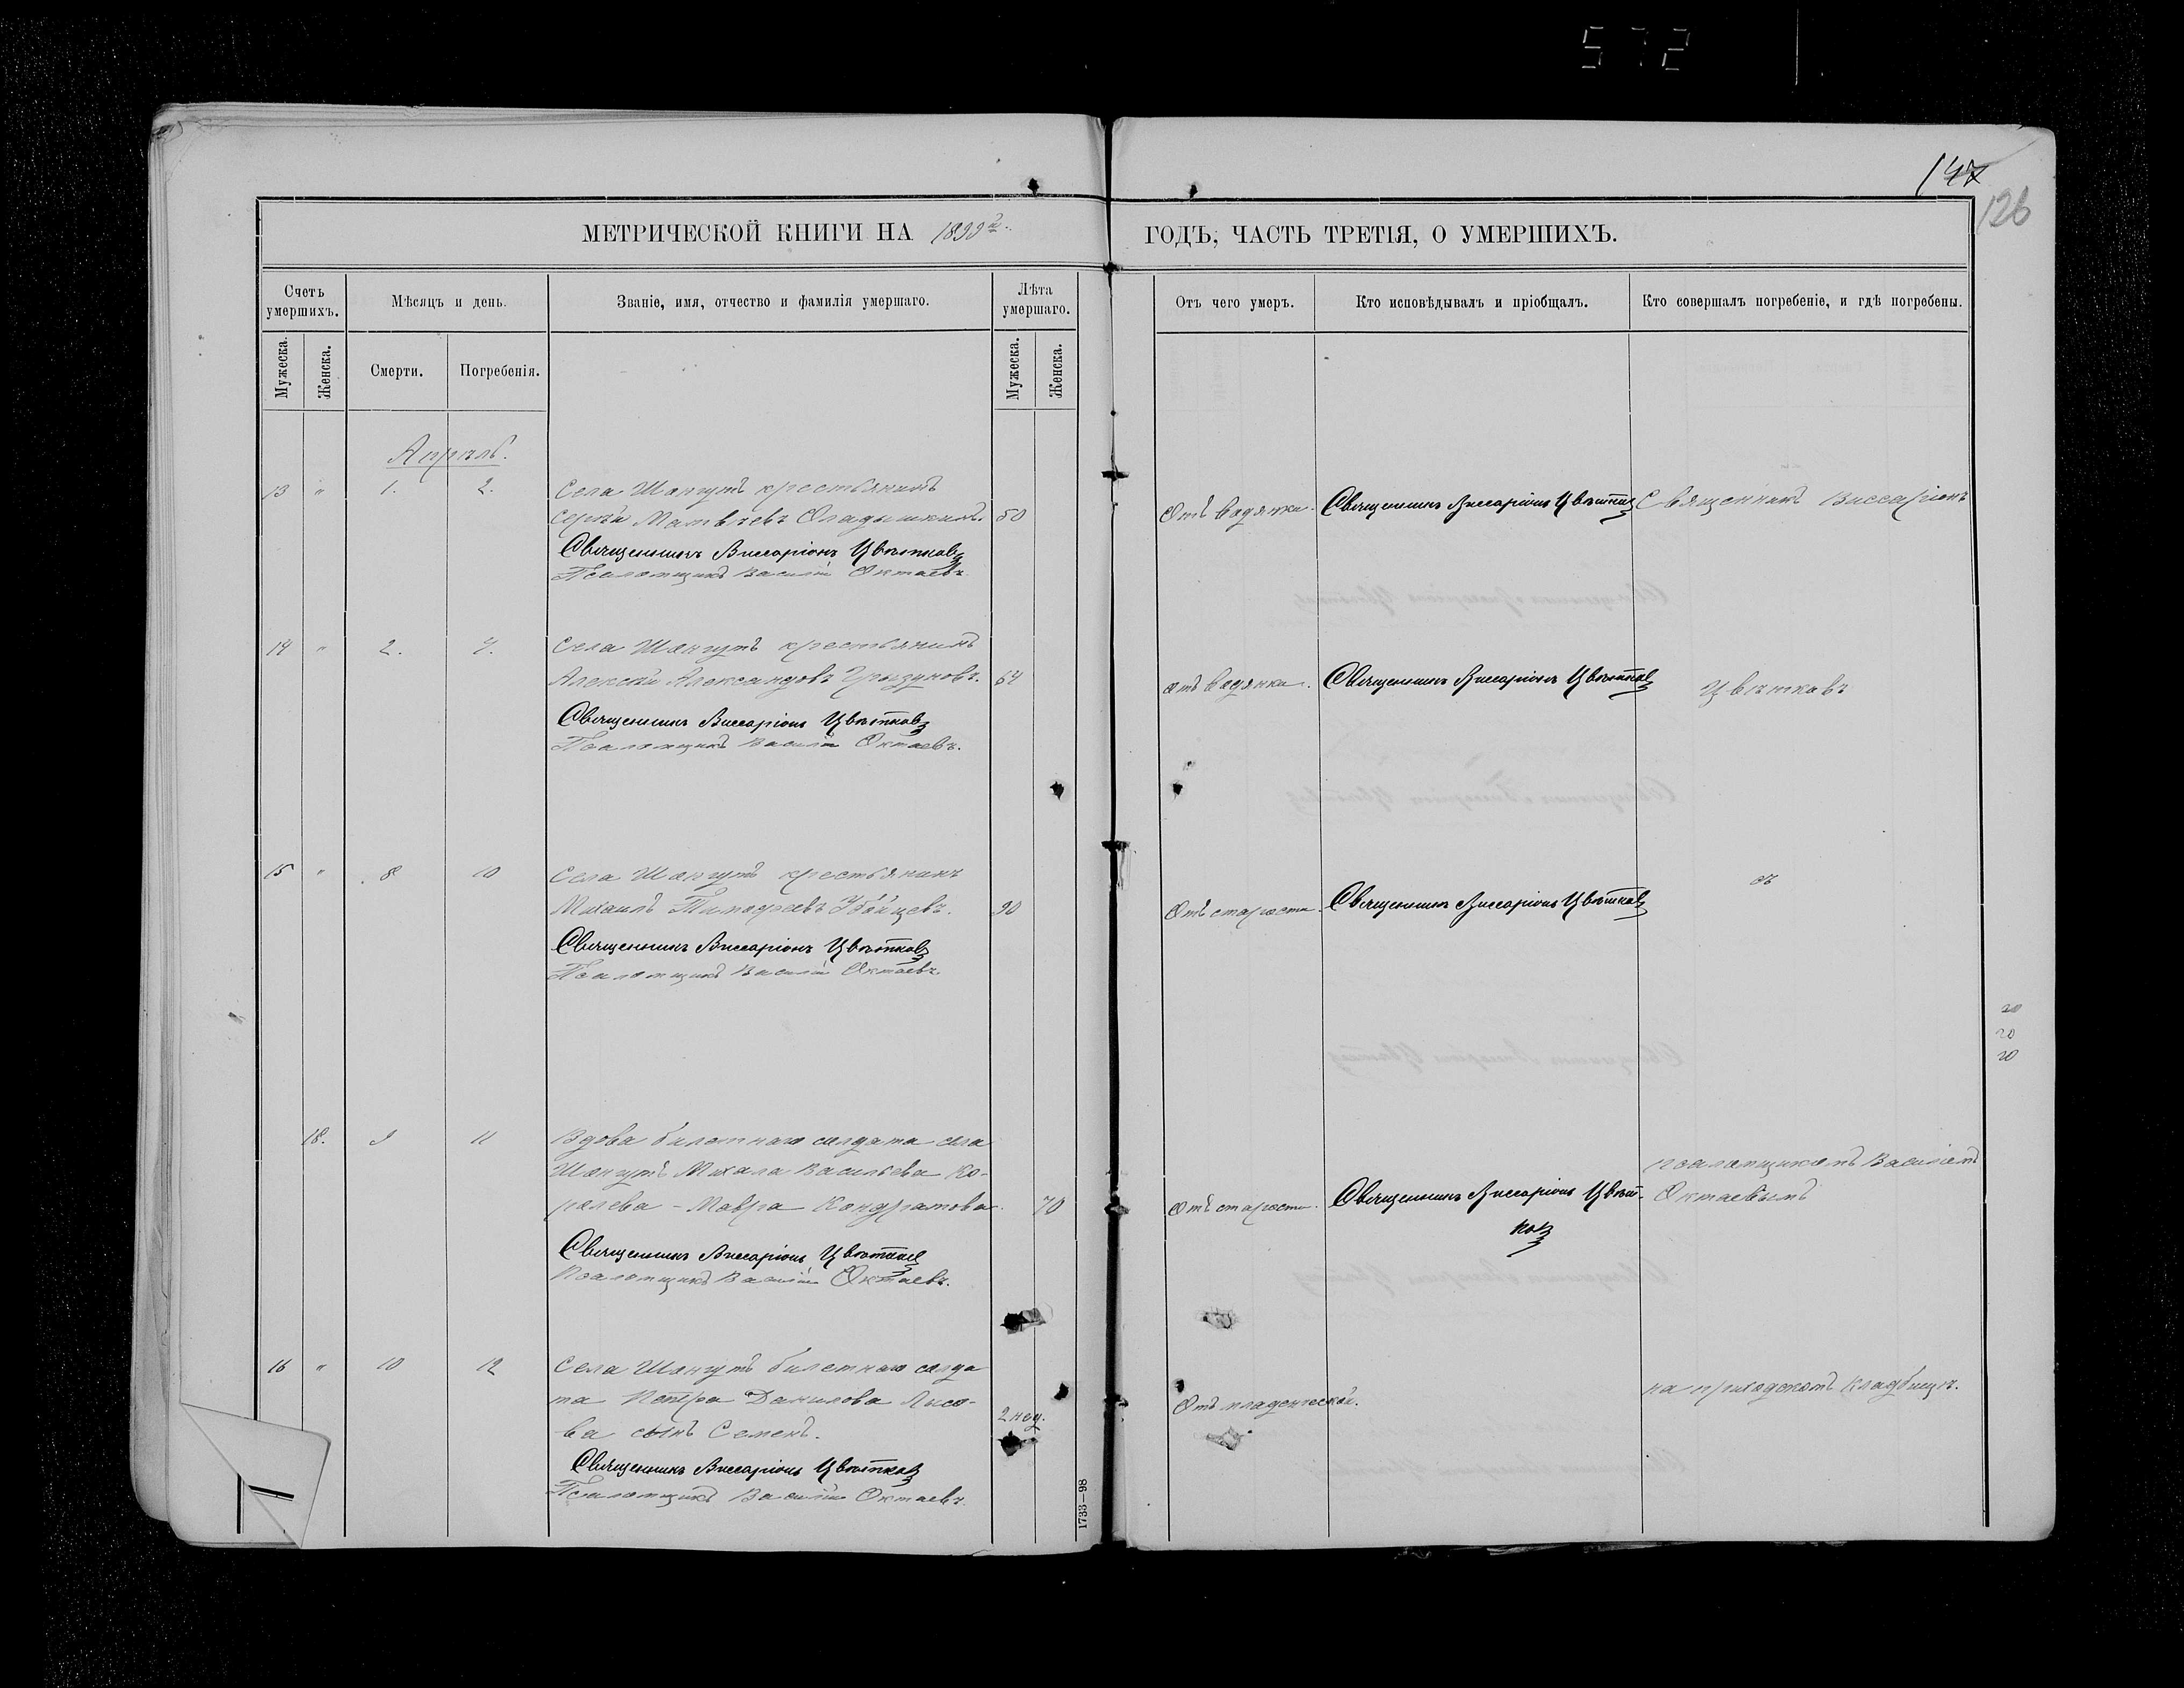 572
147
126
МЕТРИЧЕСКОЙ КНИГИ НА 1899й
ГОДЪ, ЧАСТЬ ТРЕТІЯ, О УМЕРШИХЪ.
Счетъ умершихъ.
Мѣсяцъ и день.
Званіе, имя, отчество и фамилія умершаго.
Лѣта умершаго.
Отъ чего умеръ.
Кто исповѣдывалъ и пріобщалъ.
Кто совершалъ погребеніе, и гдѣ погребены.
Мужеска.
Женска.
Смерти.
Погребенія.
Мужеска.
Женска.
Апрѣль.
13 " 1. 2. Села Шонгутъ крестьянинъ
Сергѣй Матвѣевъ Оладышкинъ. 50
Отъ водянки. Священникъ Виссаріонъ Цвѣтковъ Священникъ Виссаріонъ
Священникъ Виссаріонъ Цвѣтковъ
Псаломщикъ Василій Октаевъ.
14 " 2. 4. Села Шонгутъ крестьянинъ
Алексѣй Александровъ Грызуновъ. 64
отъ водянки. Священникъ Виссаріонъ Цвѣтковъ Цвѣтковъ
Священникъ Виссаріонъ Цвѣтковъ
Псаломщикъ Василій Октаевъ.
15 " 8 10 Села Шонгутъ крестьянинъ
Михаилъ Тимофеевъ Убойцевъ. 90
Отъ старости. Священникъ Виссаріонъ Цвѣтковъ
съ
Священникъ Виссаріонъ Цвѣтковъ
Псаломщикъ Василій Октаевъ.
20
20
20
18. 9 11 Вдова билетнаго солдата села
Шонгутъ Михаила Васильева Ко-
ролева - Мавра Кондратова. 70
отъ старости. Священникъ Виссаріонъ Цвѣт-
ковъ
псаломщикомъ Василіемъ
Октаевымъ
Священникъ Виссаріонъ Цвѣтковъ
Псаломщикъ Василій Октаевъ.
16 " 10 12 Села Шонгутъ билетнаго солда
та Петра Данилова Лысо-
ва сынъ Семенъ. 2 нед.
Отъ младенческой.
на приходскомъ кладбищѣ.
Священникъ Виссаріонъ Цвѣтковъ
Псаломщикъ Василій Октаевъ.
1733—98